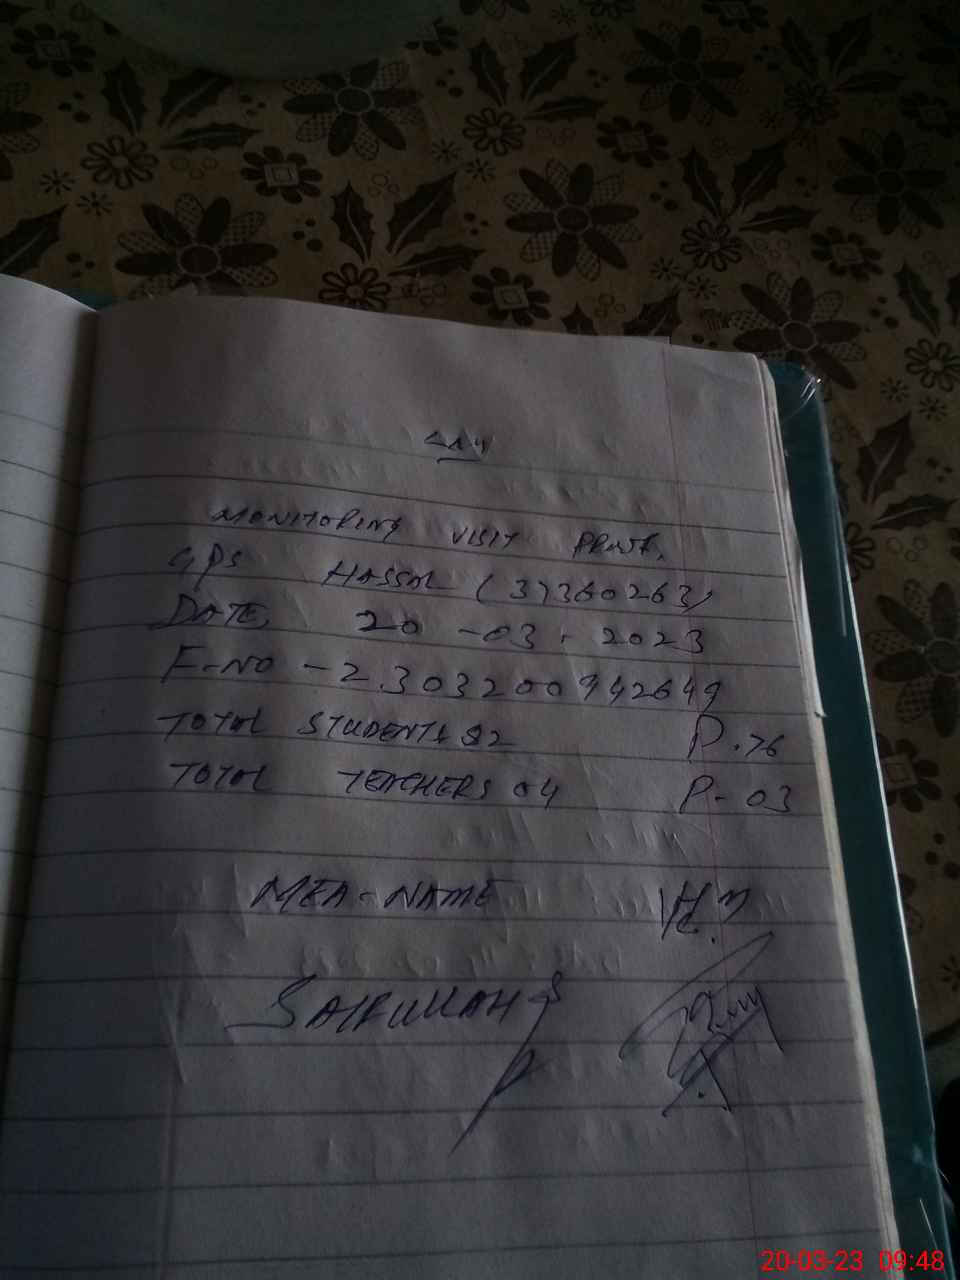 MONITORING VISIT
GPS HASSAL (37360263)
DATE, 20 -03 . 2023
F-NO - 2303200942649
TOTAL STUDENTS 92 P.76
TOTAL TEACHERS 04 P- 03
MEA-NAME H.M
SAIFULLAH
20-03-23 09:48